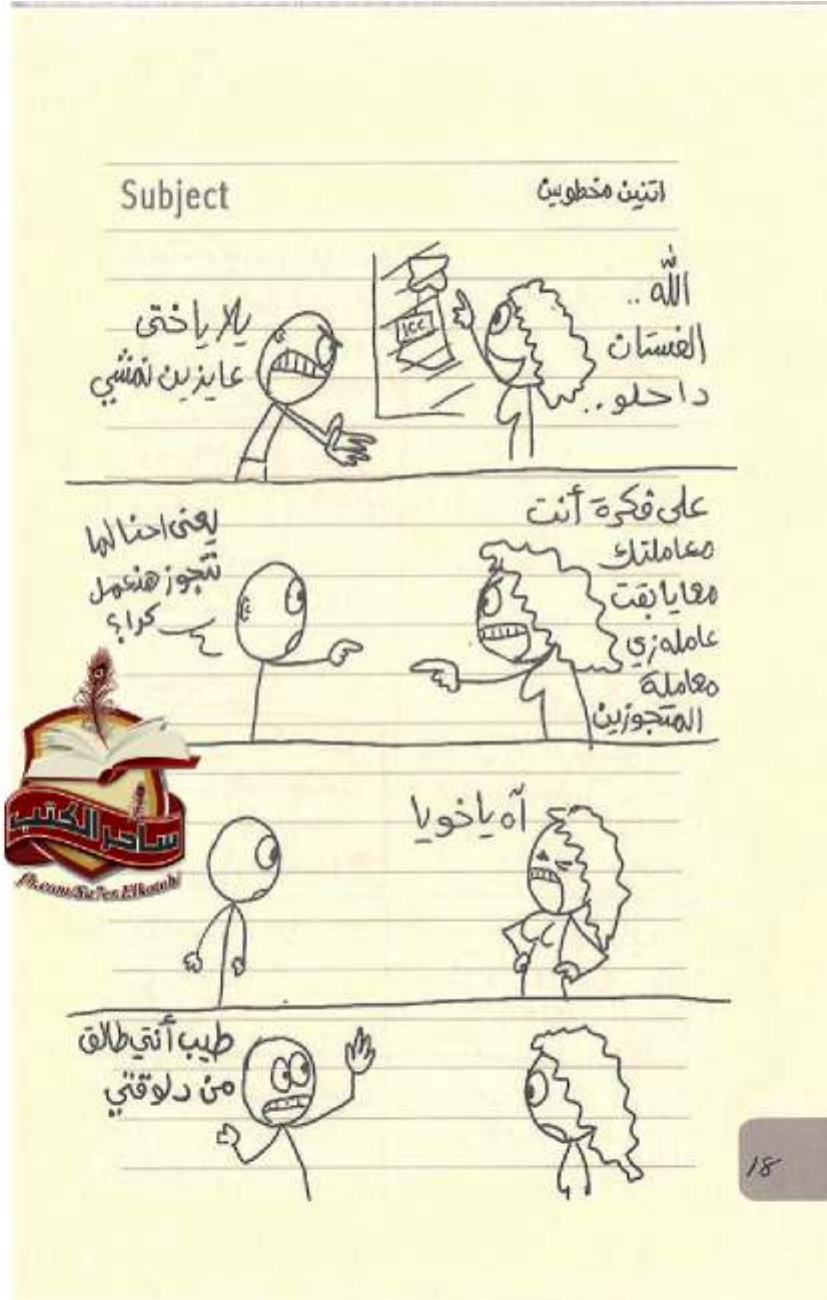 Subject
اتنين مخطوبين
الله ..
الفستان
دا حلو ..
يلا يا ختى
عايزين نمشي
على فكرة أنت
معاملتك
معايا بقت
عامله زي
معاملة
المتجوزين
يعنى احنا لما
نتجوز هنعمل
كدا؟
آه ياخويا
طيب أنتي طالق
من دلوقتي
ساحر الكتب
fb.com/Sa7er.Elkotob/
18